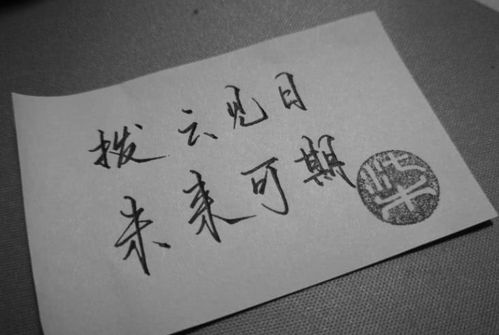 拨云见日
未来可期